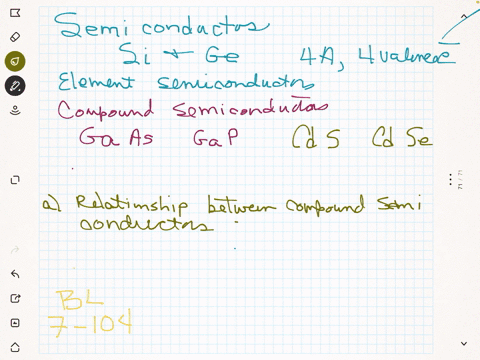 Semi conductos
Si + Ge 4A, 4 valence
Element semiconductors
Compound semiconductors
GaAs GaP CdS CdSe
a) Relationship between compound semi
conductors
BL
7-104